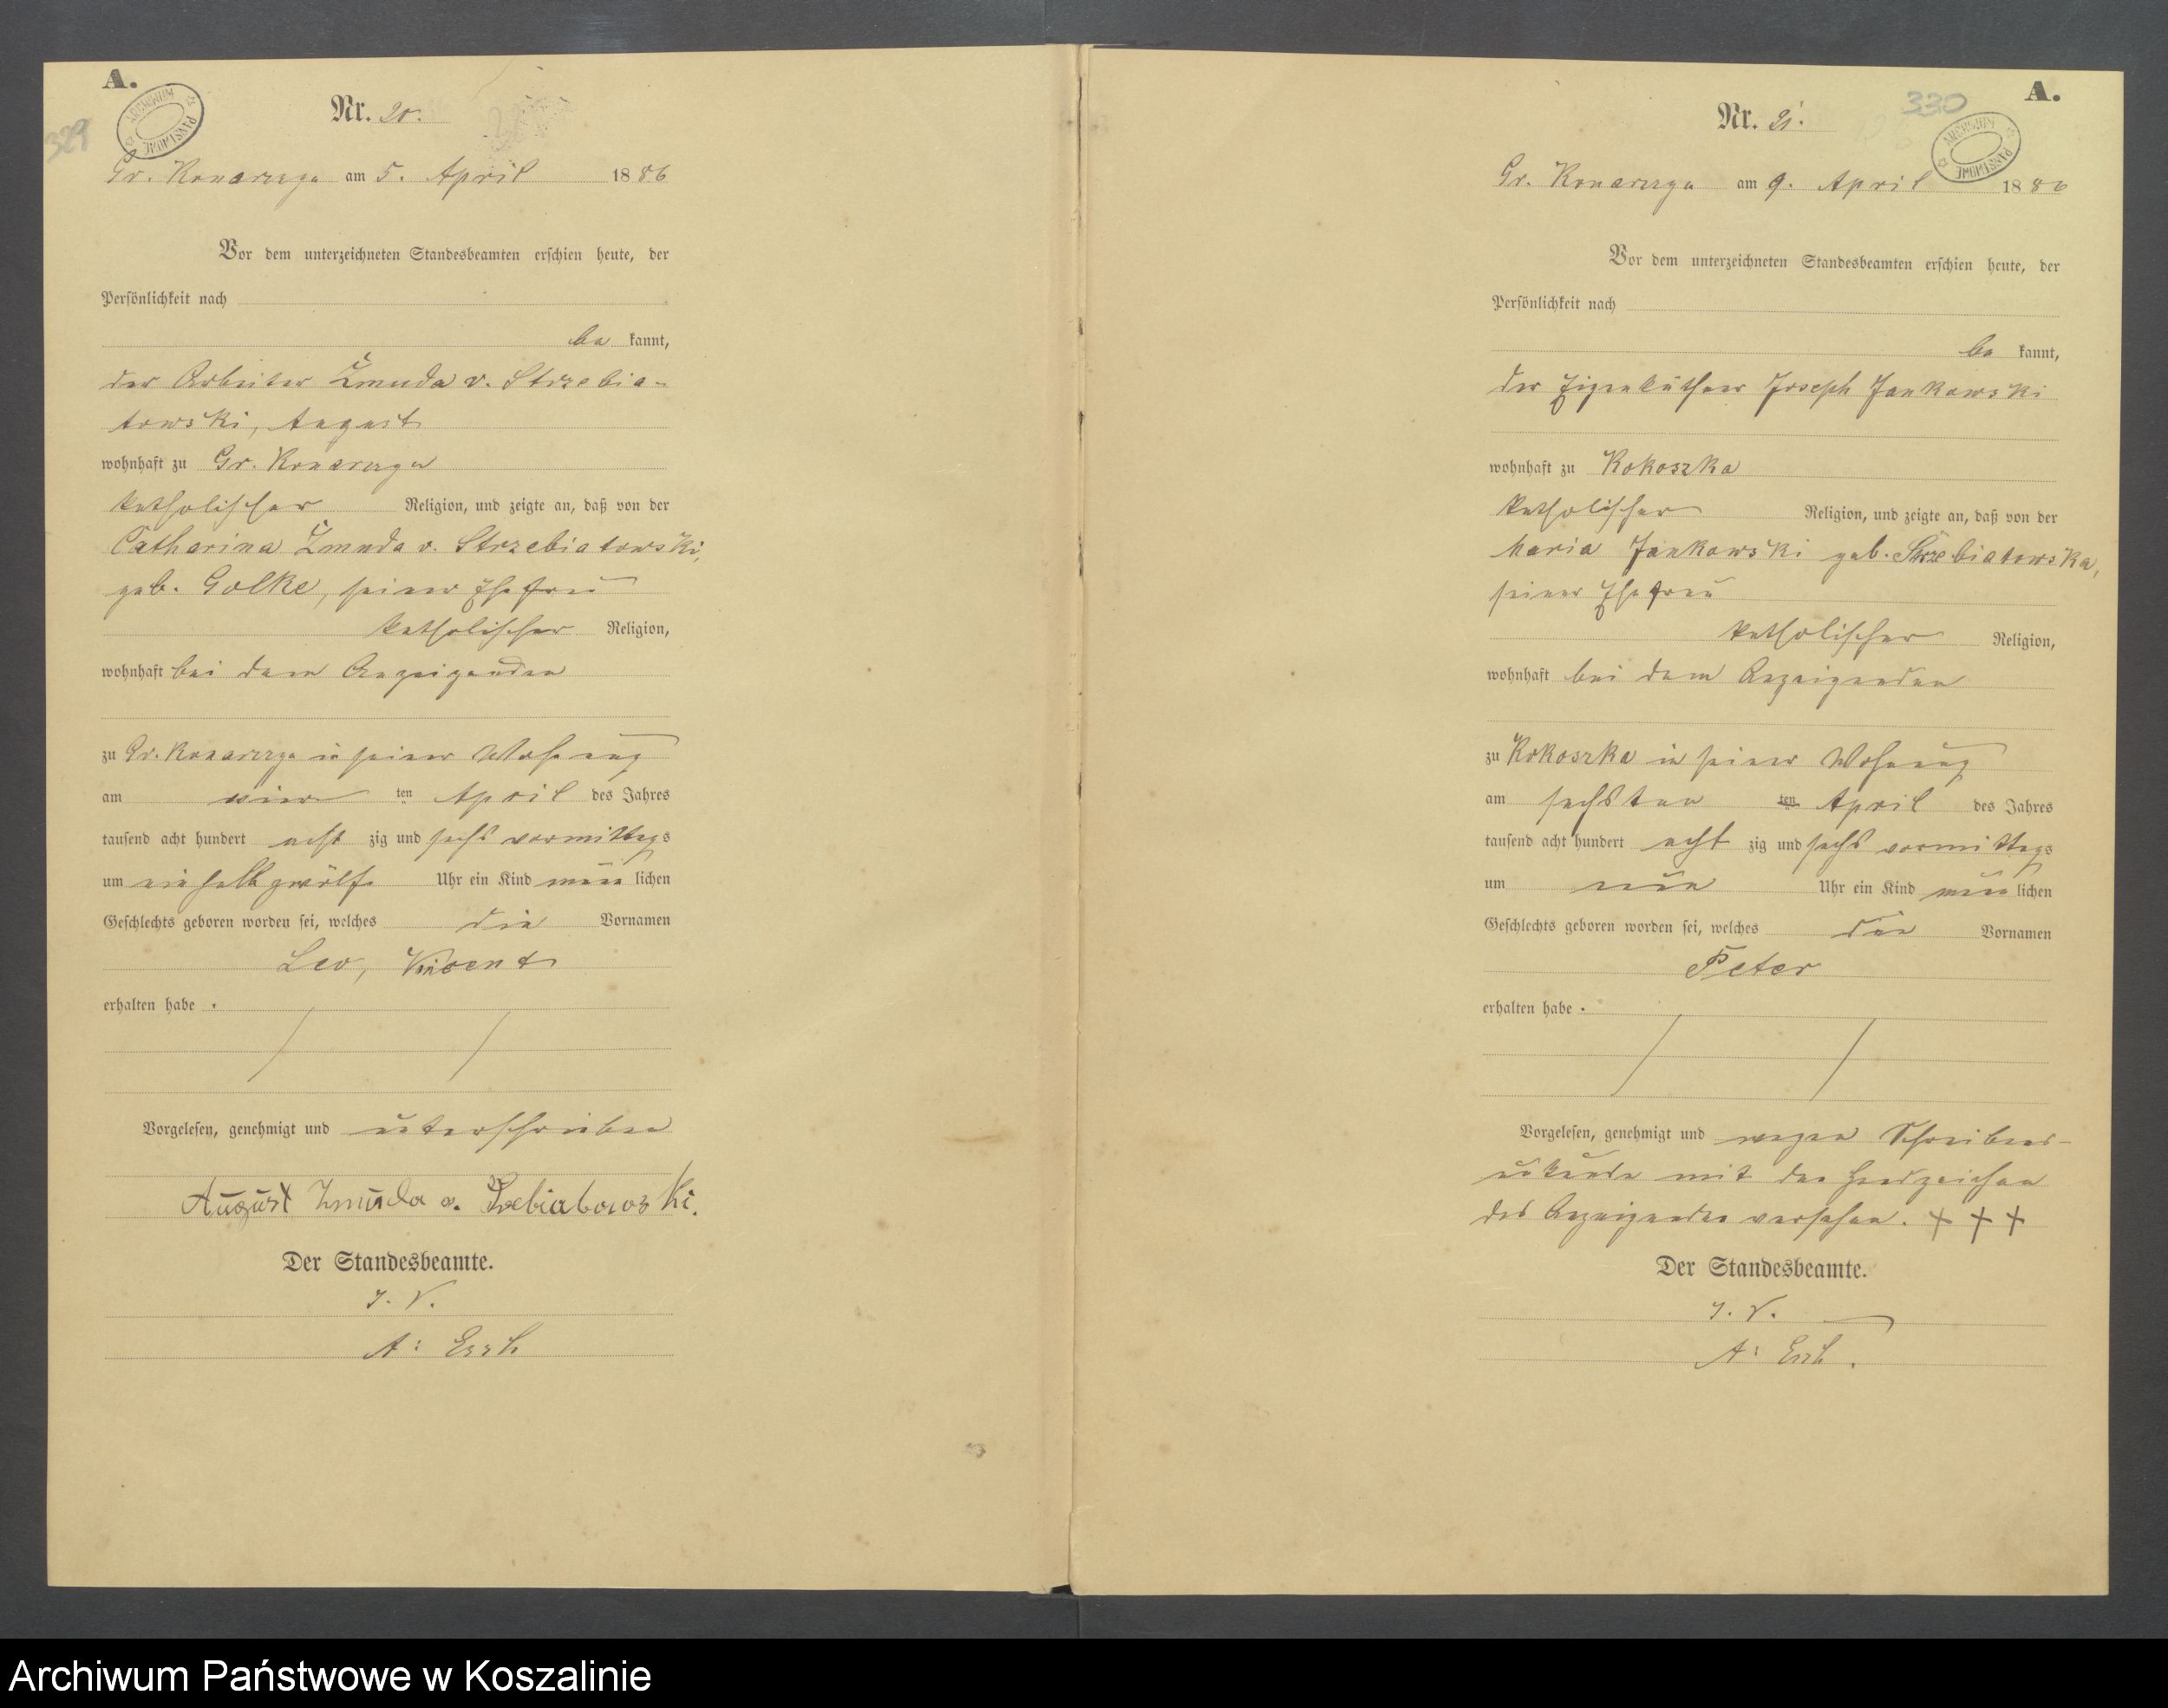 A.
ARCHIWUM PAŃSTWOWE
329
Nr. 20.
Gr. Konarzyn am 5. April 1886
Vor dem unterzeichneten Standesbeamten erschien heute, der
Persönlichkeit nach
be kannt,
der Arbeiter Żmuda v. Strzebia-
towski, August
wohnhaft zu Gr. Konarzyn
katholischer Religion, und zeigte an, daß von der
Catharina Żmuda v. Strzebiatowski,
geb. Golke, seiner Ehefrau
katholischer Religion,
wohnhaft bei dem Anzeigenden
zu Gr. Konarzyn in seiner Wohnung
am vier ten April des Jahres
tausend acht hundert acht zig und sechs vormittags
um ein halb zwölf Uhr ein Kind männ lichen
Geschlechts geboren worden sei, welches die Vornamen
Leo, Vincent
erhalten habe .
Vorgelesen, genehmigt und unterschrieben
August Zmuda v.
Der Standesbeamte.
I. V.
A:
A.
330
ARCHIWUM PAŃSTWOWE
Nr. 21.
Gr. Konarzyn am 9. April 1886
Vor dem unterzeichneten Standesbeamten erschien heute, der
Persönlichkeit nach
be kannt,
der Eigenkäthner Joseph Jankowski
wohnhaft zu Kokoszka
katholischer Religion, und zeigte an, daß von der
Maria Jankowski geb. Strzebiatowska,
seiner Ehefrau
katholischer Religion,
wohnhaft bei dem Anzeigenden
zu Kokoszka in seiner Wohnung
am sechsten ten April des Jahres
tausend acht hundert acht zig und sechs vormittags
um neun Uhr ein Kind männ lichen
Geschlechts geboren worden sei, welches den Vornamen
Peter
erhalten habe .
Vorgelesen, genehmigt und wegen Schreibens-
unkunde mit den Handzeichen
des Anzeigenden versehen. + + +
Der Standesbeamte.
I. V.
A:
Archiwum Państwowe w Koszalinie